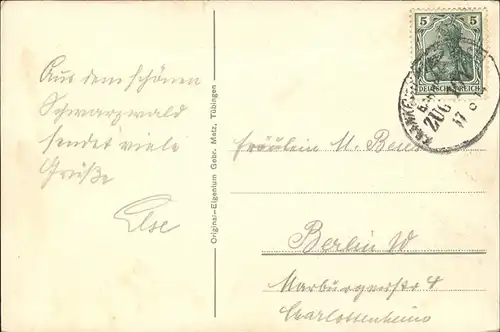 Aus dem schönen
Schwarzwald
sendet viele
Grüße
Else
Original-Eigentum Gebr. Metz, Tübingen
5 5
DEUTSCHES REICH
ZUG
17 8
Fräulein M.
Berlin W
Marburgerstr 4